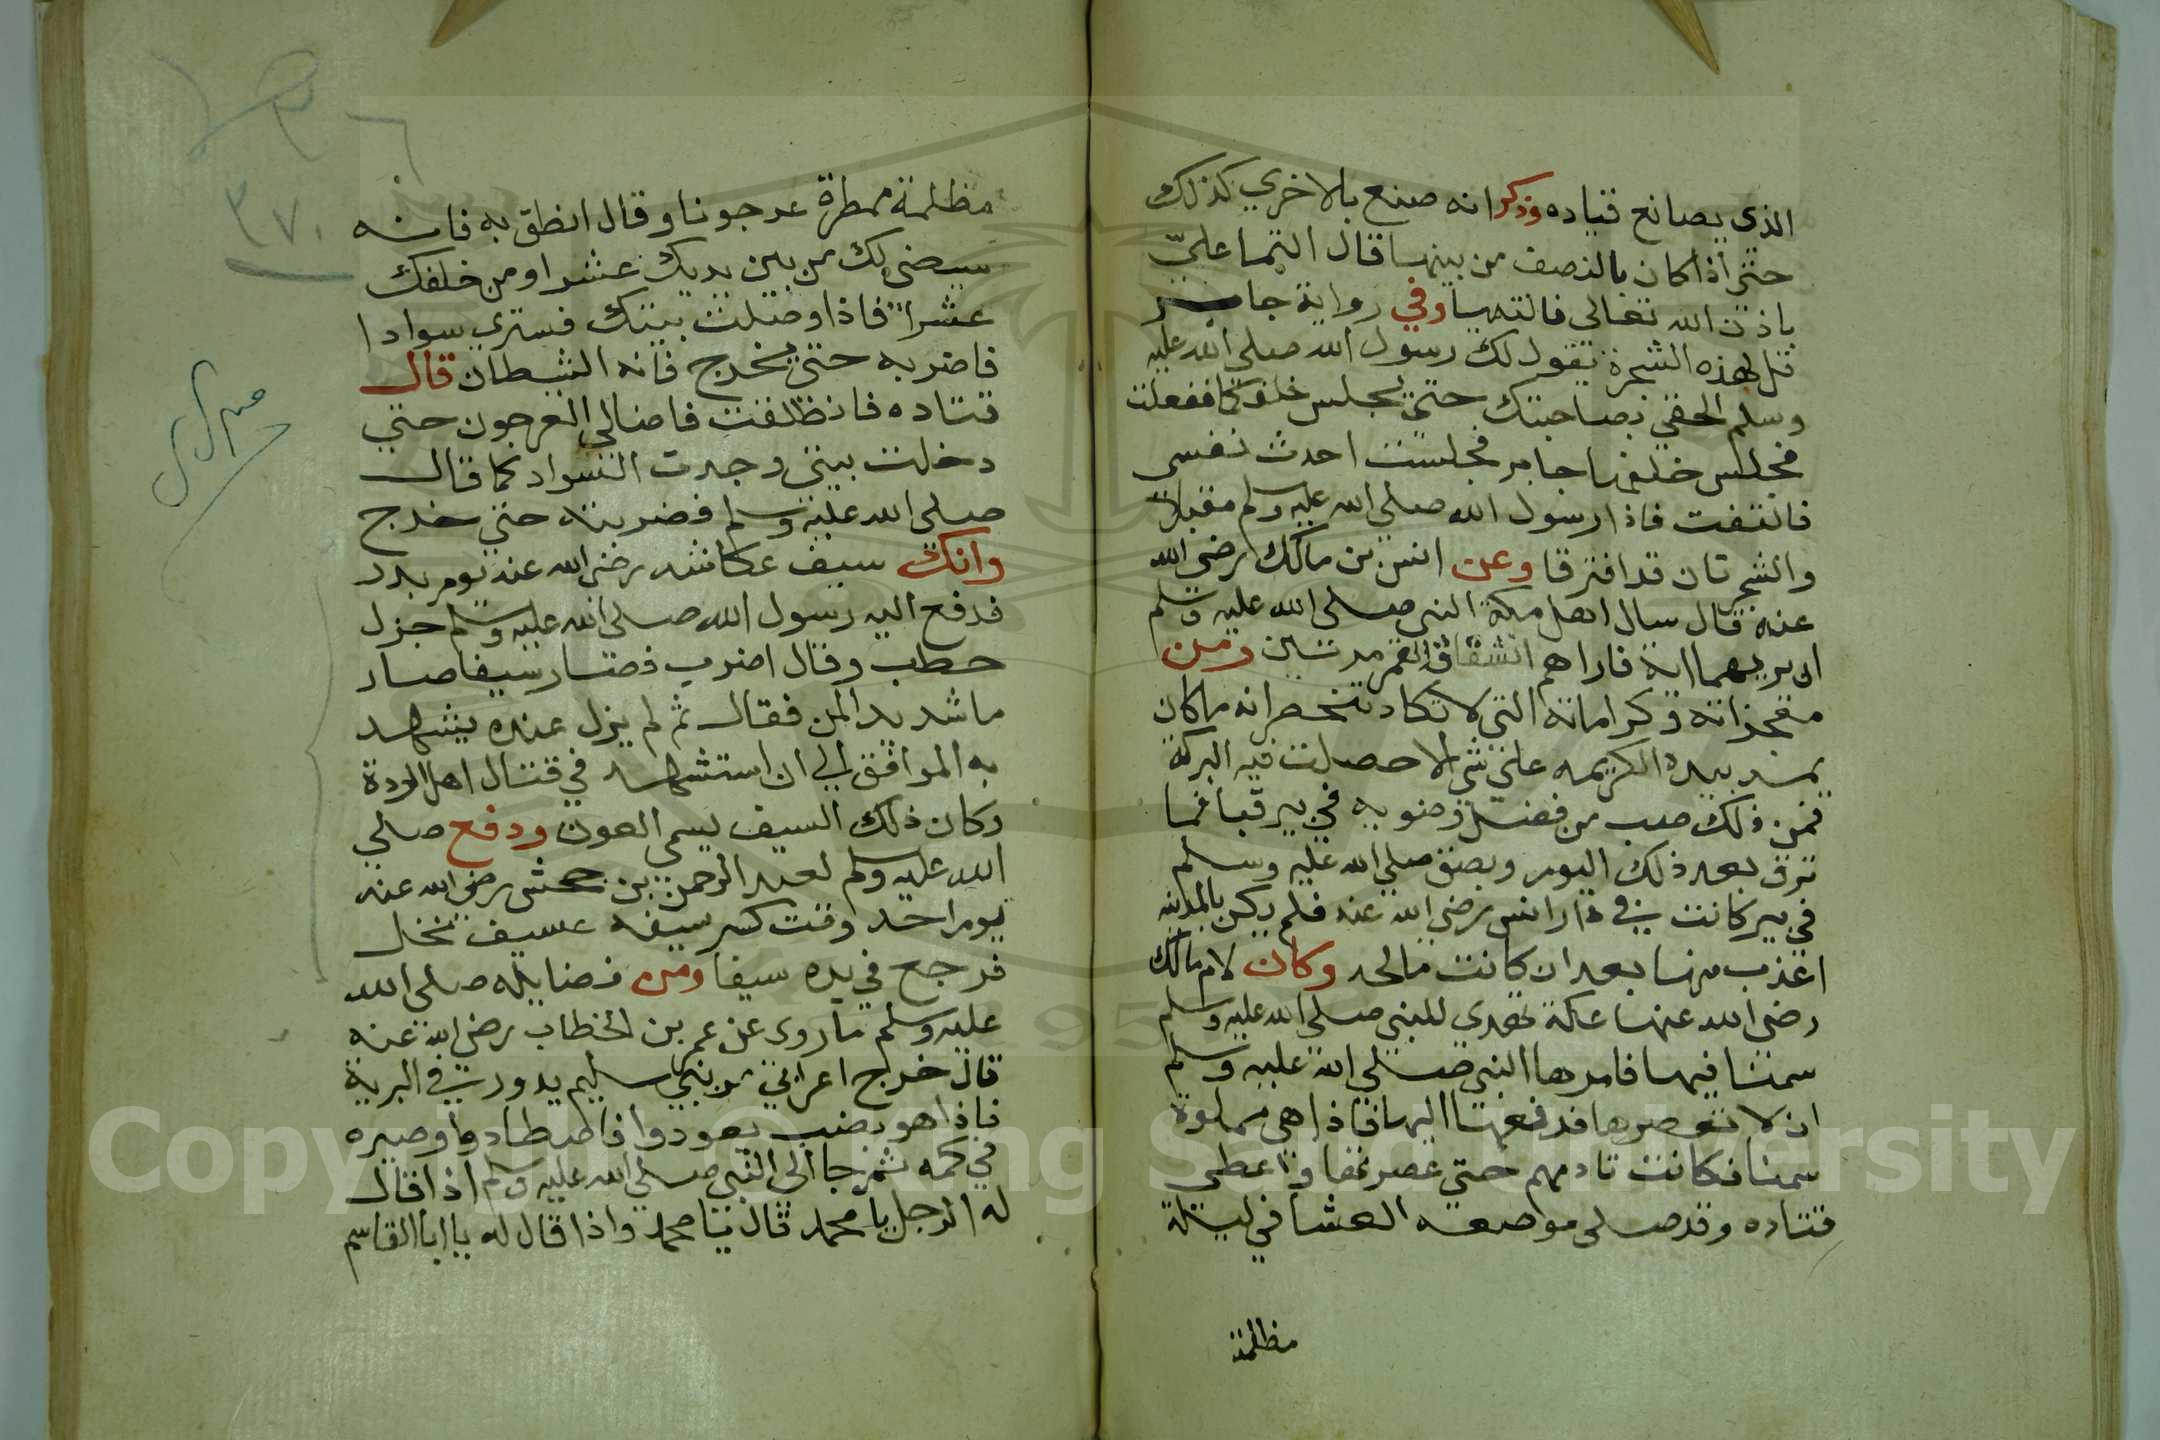 الذى يصانع قياده وذكر انه صنع بالاخري كذلك
حتى اذا كان بالنصف من بينهما قال التما علىّ
باذن الله تعالى فالتهما وفي رواية جابر
قل لهذه الشجرة يقول لك رسول الله صلى الله عليه
وسلم الحقي بصاحبتك حتى يجلس خلفكما ففعلت
فجلس خلفهما جابر فجلست احدث نفسى
فالتفت فاذا رسول الله صلى الله عليه وسلم مقبلا
والشجرتان قد افترقا وعن انس بن مالك رضى الله
عنه قال سال اهل مكة النبى صلى الله عليه وسلم
ان يريهم اية فاراهم انشقاق القمر مرتين ومن
معجزاته وكراماته التى لا تكاد تنحصر انه ما كان
يمر بيده الكريمه على شى الا حصلت فيه البركة
فمن ذلك صب من فضل وضوءه في بير قبا فما
نزف بعد ذلك اليوم وبصق صلى الله عليه وسلم
في بير كانت في دار انس رضى الله عنه فلم يكن بالمدينه
اعذب منها بعد ان كانت مالحه وكان لام مالك
رضى الله عنها عكة تهدى للنبى صلى الله عليه وسلم
سمنا فيها فامرها النبى صلى الله عليه وسلم
ان لا تعصرها فدفعها اليها فاذا هى مملوة
سمنا فكانت تادمهم حتى عصرتها واعطى
قتاده وقد صلى معه العشا في ليلة
مظلمة
مظلمة ممطرة عرجونا وقال انطلق به فانه
سيضى لك من بين يديك عشرا ومن خلفك
عشرا فاذا دخلت بيتك فسترى سوادا
فاضربه حتى يخرج فانه الشيطان قال
قتاده فانطلقت فاضا لي العرجون حتي
دخلت بيتى وجدت السواد كما قال
صلى الله عليه وسلم فضربته حتى خرج
وانك سيف عكاشه رضى الله عنه يوم بدر
فدفع اليه رسول الله صلى الله عليه وسلم جزل
حطب وقال اضرب فصار سيفا صار
ما شديد المن فقال ثم لم يزل عنده يشهد
به المواقف الي ان استشهد في قتال اهل الردة
وكان ذلك السيف يسمى العون ودفع صلي
الله عليه وسلم لعبد الرحمن بن جحش رضى الله عنه
يوم احد وقت كسر سيفه عسيف نخل
فرجع في يده سيفا ومن فضايله صلى الله
عليه وسلم ما روى عن عمر بن الخطاب رضى الله عنه
قال خرج اعرابى من بنى سليم يدور في البرية
فاذا هو بضب يعدوا فاصطاده وصيره
في كمه ثم جا الى النبى صلى الله عليه وسلم اذا قال
له الرجل يا محمد قال يا محمد واذا قال له يا ابا القاسم
٣٧٠
Copyright © King Saud University